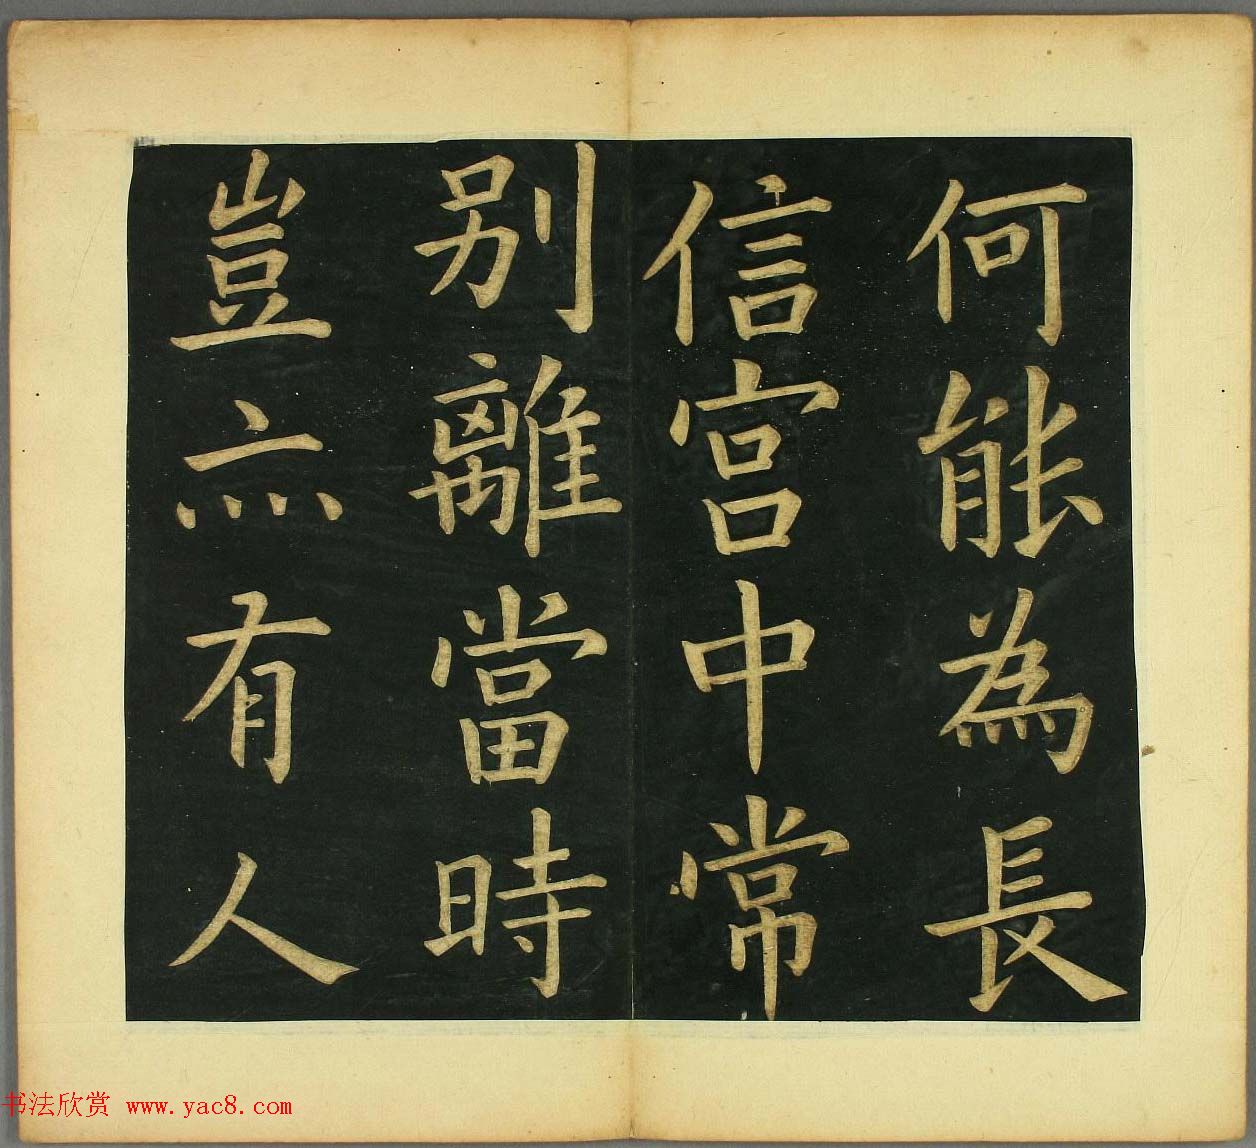 何能為長
信宮中常
别離當時
豈亦有人
书法欣赏 www.yac8.com